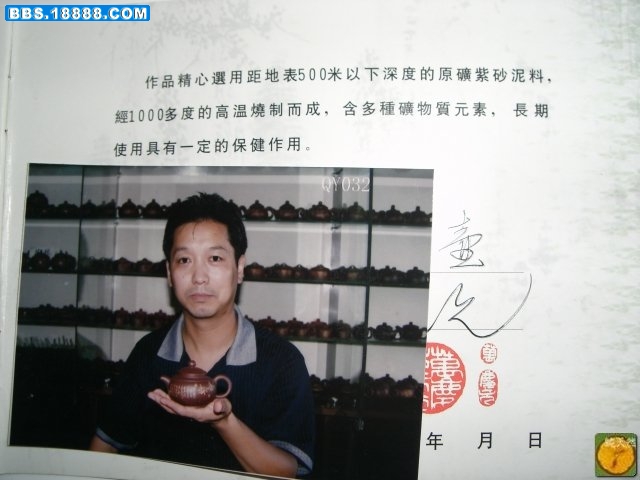 BBS.18888.COM
作品精心選用距地表500米以下深度的原礦紫砂泥料,
經1000多度的高温燒制而成，含多種礦物質元素，長期
使用具有一定的保健作用。
QY032
年 月 日